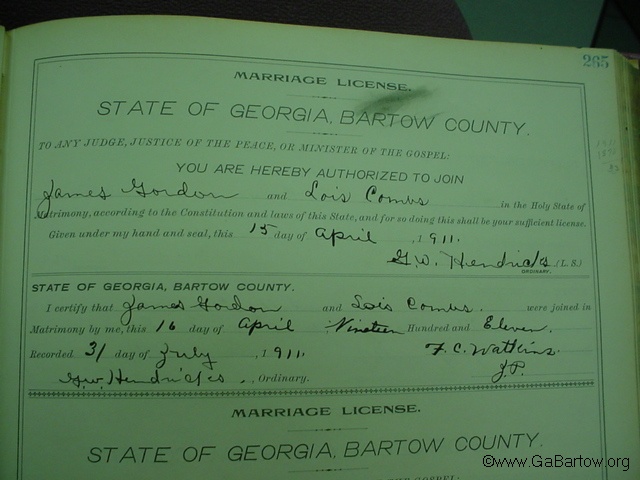 265
MARRIAGE LICENSE.
STATE OF GEORGIA, BARTOW COUNTY.
TO ANY JUDGE, JUSTICE OF THE PEACE, OR MINISTER OF THE GOSPEL:
YOU ARE HEREBY AUTHORIZED TO JOIN
James Gordon and Lois Combs in the Holy State of
Matrimony, according to the Constitution and laws of this State, and for so doing this shall be your sufficient license.
Given under my hand and seal, this 15 day of April, 1911.
G.W. Hendricks (L. S.)
ORDINARY.
STATE OF GEORGIA, BARTOW COUNTY.
I certify that James Gordon and Lois Combs. were joined in
Matrimony by me, this 16 day of April Nineteen Hundred and Eleven.
Recorded 31 day of July, 1911. F. C. Watkins.
G.W. Hendricks, Ordinary. J.P.
MARRIAGE LICENSE.
STATE OF GEORGIA, BARTOW COUNTY.
©www.GaBartow.org